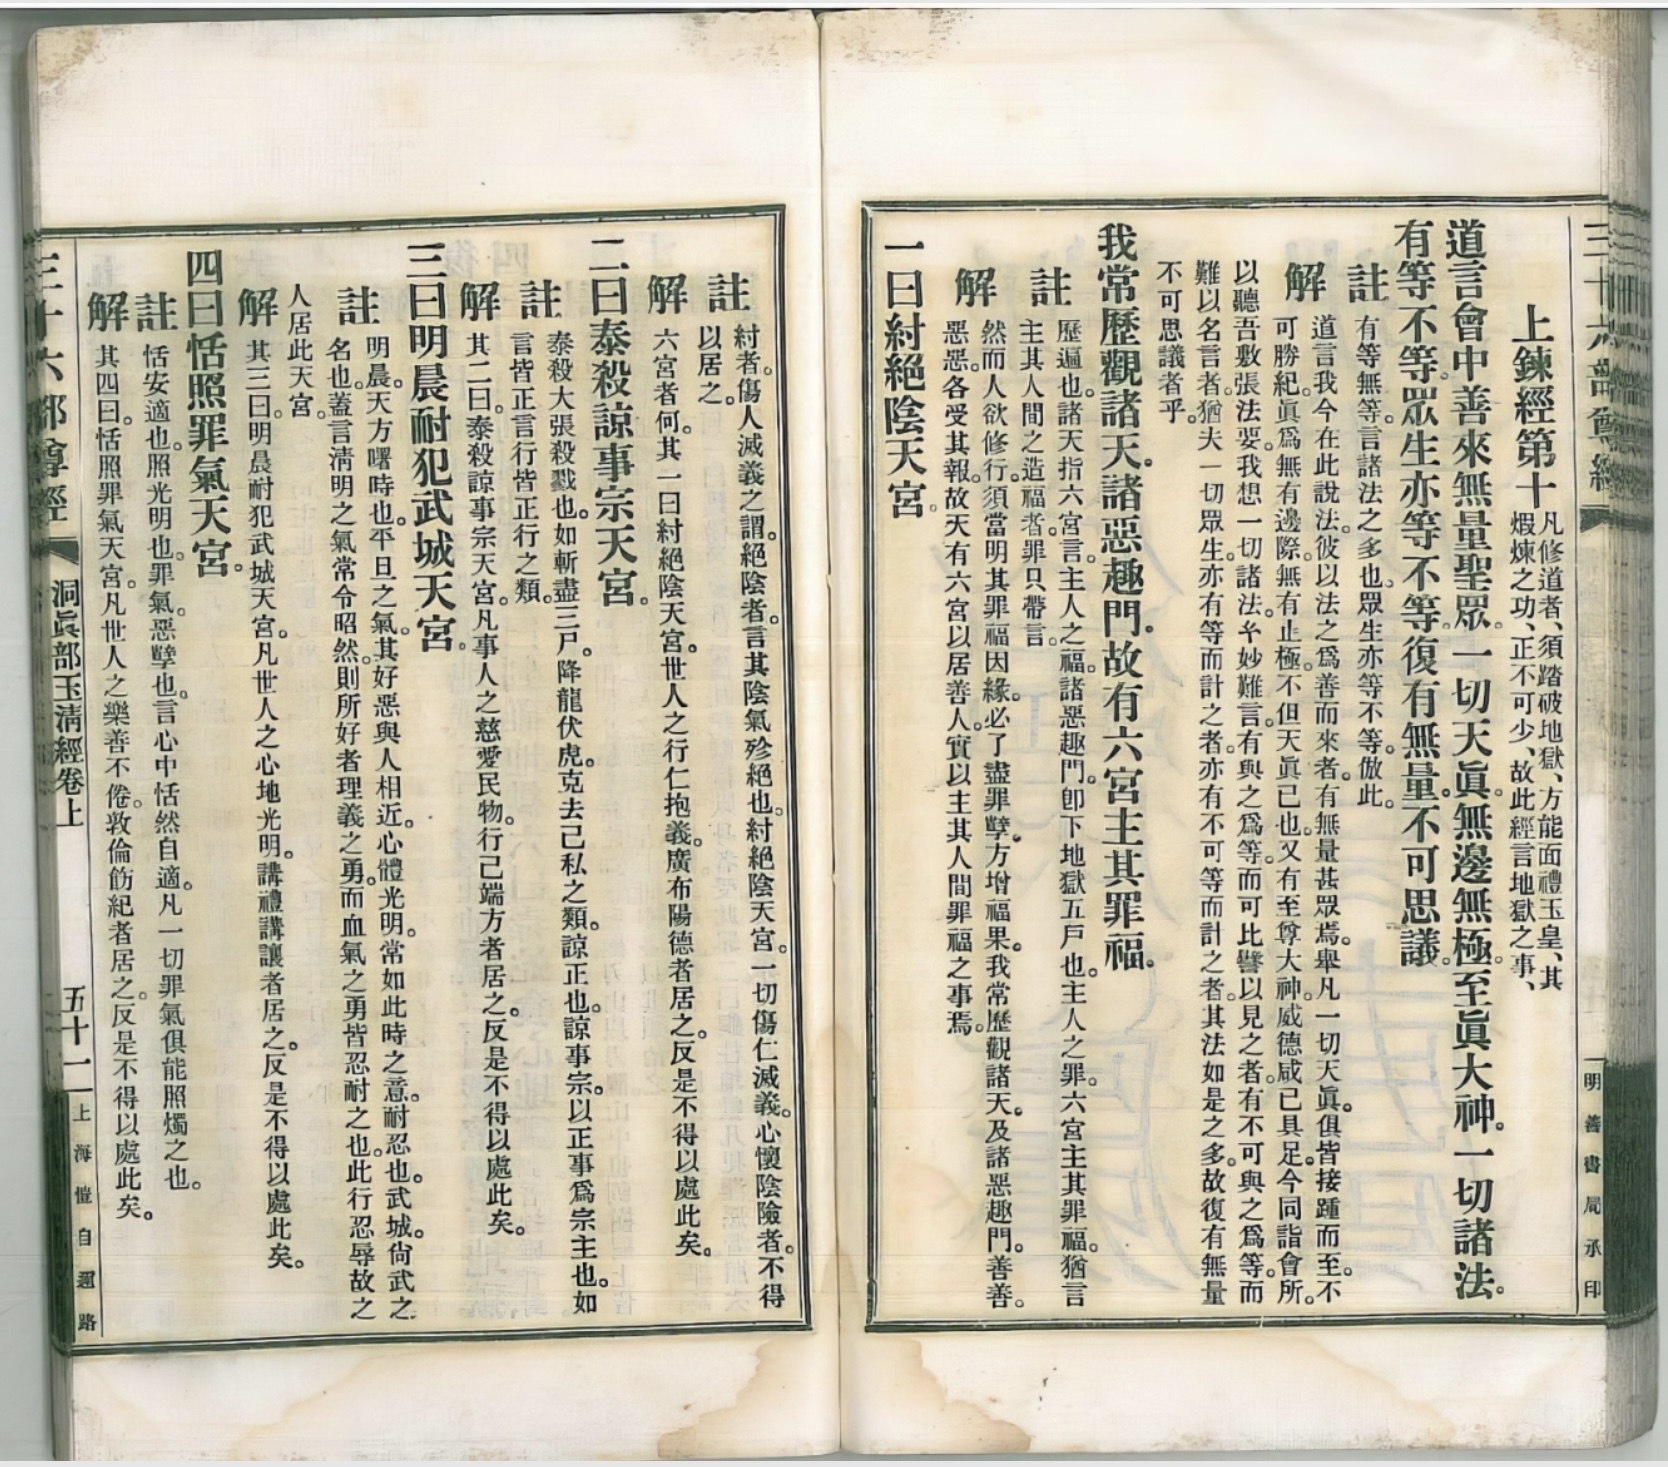 明善書局承印
上鍊經第十
凡修道者、須踏破地獄、方能面禮玉皇、其
煆煉之功、正不可少、故此經言地獄之事、
道言會中善來無量聖眾。一切天眞。無邊無極。至眞大神。一切諸法。
有等不等。眾生亦等不等。復有無量。不可思議。
註
有等無等。言諸法之多也。眾生亦等不等。倣此。
解
道言我今在此說法。彼以法之爲善而來者。有無量甚眾焉。舉凡一切天眞。俱皆接踵而至。不
可勝紀。眞爲無有邊際。無有止極。不但天眞已也。又有至尊大神。威德咸已具足。今同詣會所。
以聽吾敷張法要。我想一切諸法。幺妙難言。有與之爲等。而可比譬以見之者。有不可與之爲等。而
難以名言者。猶夫一切眾生。亦有等而計之者。亦有不可等而計之者。其法如是之多。故復有無量
不可思議者乎。
我常歷觀諸天。諸惡趣門。故有六宮主其罪福。
註
歷遍也。諸天指六宮言。主人之福。諸惡趣門。卽下地獄五戶也。主人之罪。六宮主其罪福。猶言
主其人間之造福者。罪只帶言。
解
然而人欲修行。須當明其罪福因緣。必了盡罪孽。方增福果。我常歷觀諸天。及諸惡趣門。善善。
惡惡。各受其報。故天有六宮以居善人。實以主其人間罪福之事焉。
一曰紂絕陰天宮。
註
紂者。傷人滅義之謂。絕陰者。言其陰氣殄絕也。紂絕陰天宮。一切傷仁滅義。心懷陰險者。不得
以居之。
解
六宮者何。其一曰紂絕陰天宮。世人之行仁抱義。廣布陽德者居之。反是不得以處此矣。
二曰泰殺諒事宗天宮。
註
泰殺大張殺戮也。如斬盡三尸。降龍伏虎。克去己私之類。諒正也。諒事宗。以正事爲宗主也。如
言皆正言。行皆正行之類。
解
其二曰。泰殺諒事宗天宮。凡事人之慈愛民物。行己端方者居之。反是不得以處此矣。
三曰明晨耐犯武城天宮。
註
明晨。天方曙時也。平旦之氣。其好惡與人相近。心體光明。常如此時之意。耐忍也。武城。尙武之
名也。蓋言淸明之氣常令昭然。則所好者理義之勇。而血氣之勇皆忍耐之也。此行忍辱故之
人居此天宮。
解
其三曰。明晨耐犯武城天宮。凡世人之心地光明。講禮講讓者居之。反是不得以處此矣。
四曰恬照罪氣天宮。
註
恬安適也。照光明也。罪氣。惡孽也。言心中恬然自適。凡一切罪氣俱能照燭之也。
解
其四曰。恬照罪氣天宮。凡世人之樂善不倦。敦倫飭紀者居之。反是不得以處此矣。
三十六部尊經
洞眞部玉淸經卷上
五十一
上海愷自邇路